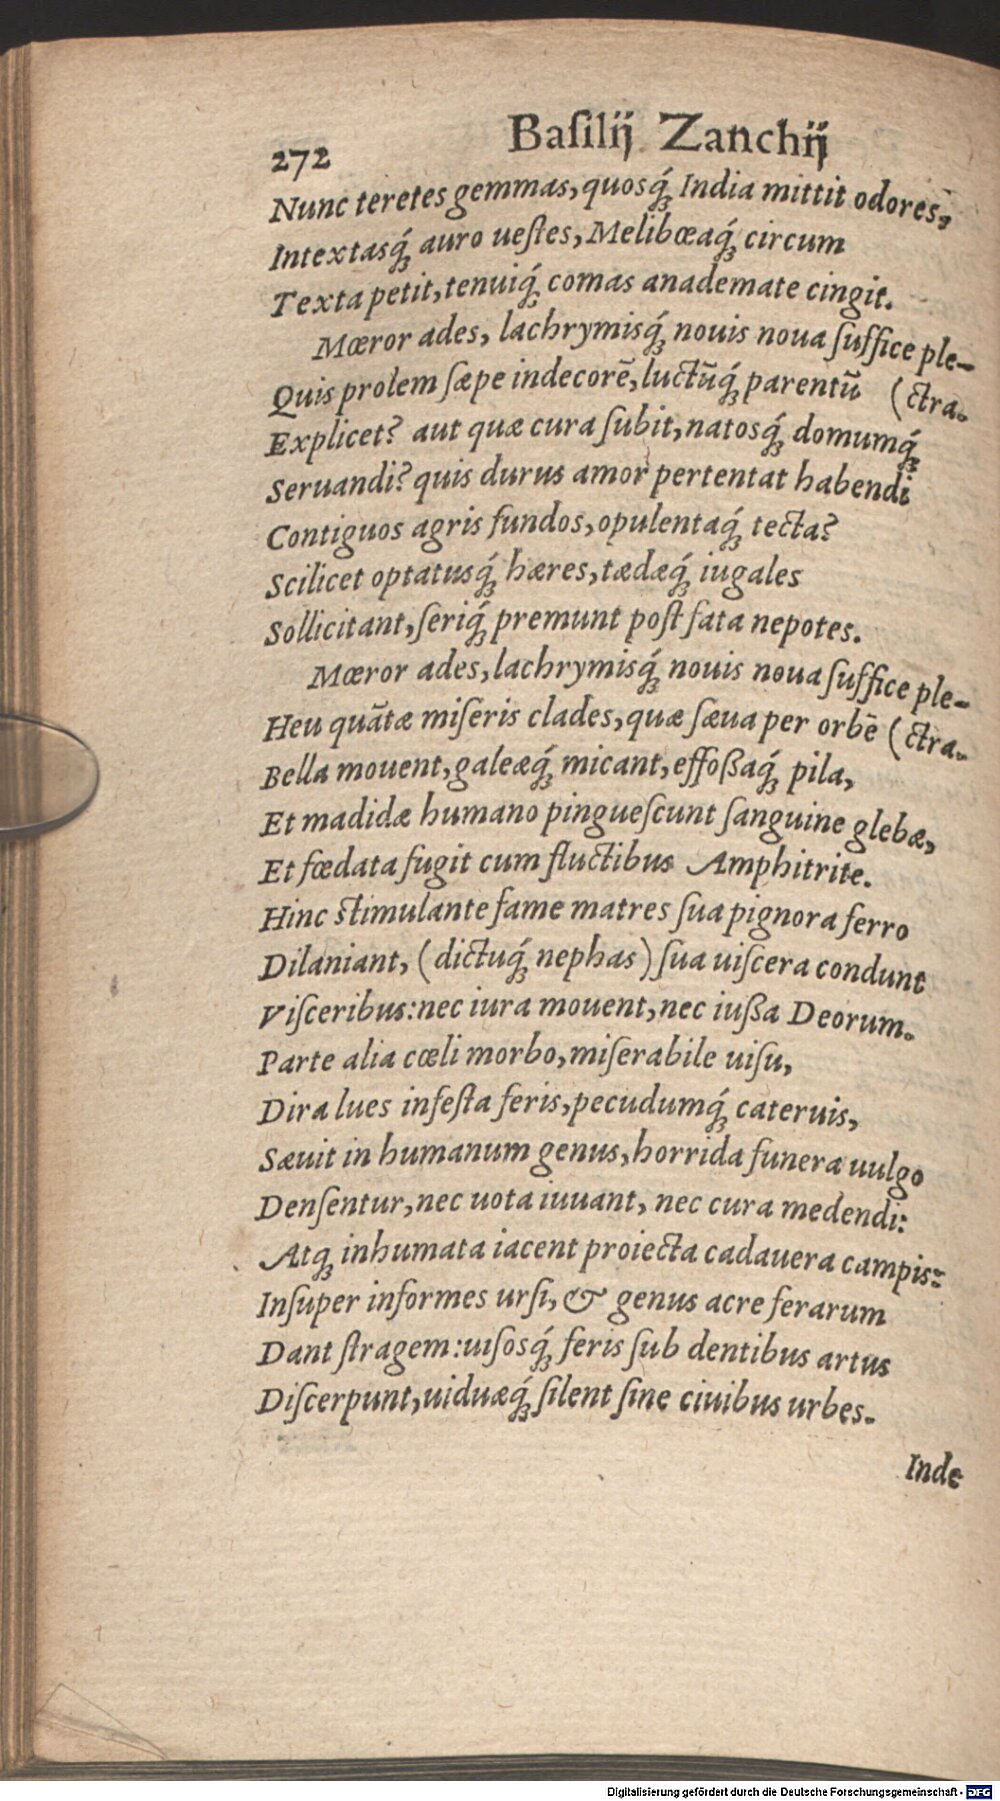 272 Baſilij Zanchij
Nunc teretes gemmas, quosq́; India mittit odores,
Intextasq́; auro ueſtes, Melibœaq́; circum
Texta petit, tenuiq́; comas anademate cingit.
Mœror ades, lachrymisq́; nouis noua ſuffice ple-
Quis prolem ſæpe indecorē, luctūq́; parentū (ctra.
Explicet? aut quæ cura ſubit, natosq́; domumq́;
Seruandi? quis durus amor pertentat habendi
Contiguos agris fundos, opulentaq́; tecta?
Scilicet optatusq́; hæres, tædæq́; iugales
Sollicitant, ſeriq́; premunt poſt fata nepotes.
Mœror ades, lachrymisq́; nouis noua ſuffice ple-
Heu quātæ miſeris clades, quæ ſæua per orbē (ctra.
Bella mouent, galeæq́; micant, effoßaq́; pila,
Et madidæ humano pingueſcunt ſanguine glebæ,
Et fœdata fugit cum fluctibus Amphitrite.
Hinc ſtimulante fame matres ſua pignora ferro
Dilaniant, (dictuq́; nephas) ſua uiſcera condunt
Viſceribus: nec iura mouent, nec iußa Deorum.
Parte alia cœli morbo, miſerabile uiſu,
Dira lues infeſta feris, pecudumq́; cateruis,
Sæuit in humanum genus, horrida funera uulgo
Denſentur, nec uota iuuant, nec cura medendi:
Atq; inhumata iacent proiecta cadauera campis:
Inſuper informes urſi, & genus acre ferarum
Dant ſtragem: uiſosq́; feris ſub dentibus artus
Diſcerpunt, uiduæq́; ſilent ſine ciuibus urbes.
Inde
Digitalisierung gefördert durch die Deutsche Forschungsgemeinschaft - DFG